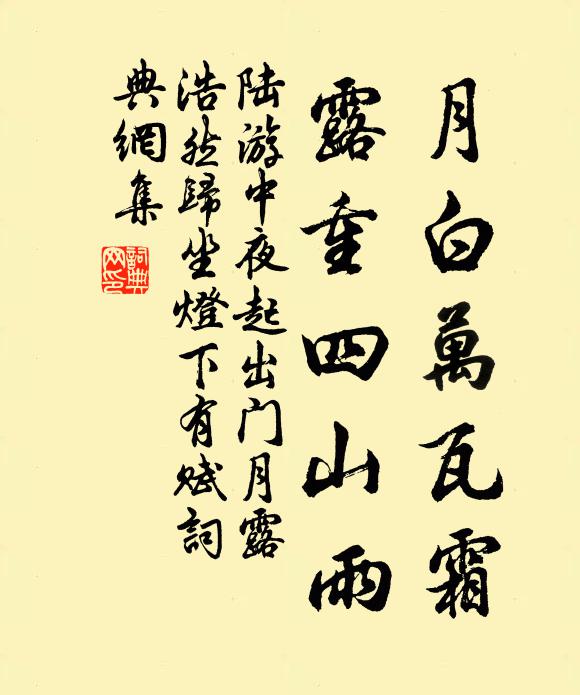 月白萬瓦霜
露重四山雨
陆游中夜起出门月露
浩然歸坐燈下有赋詞
典網集
詞典網印